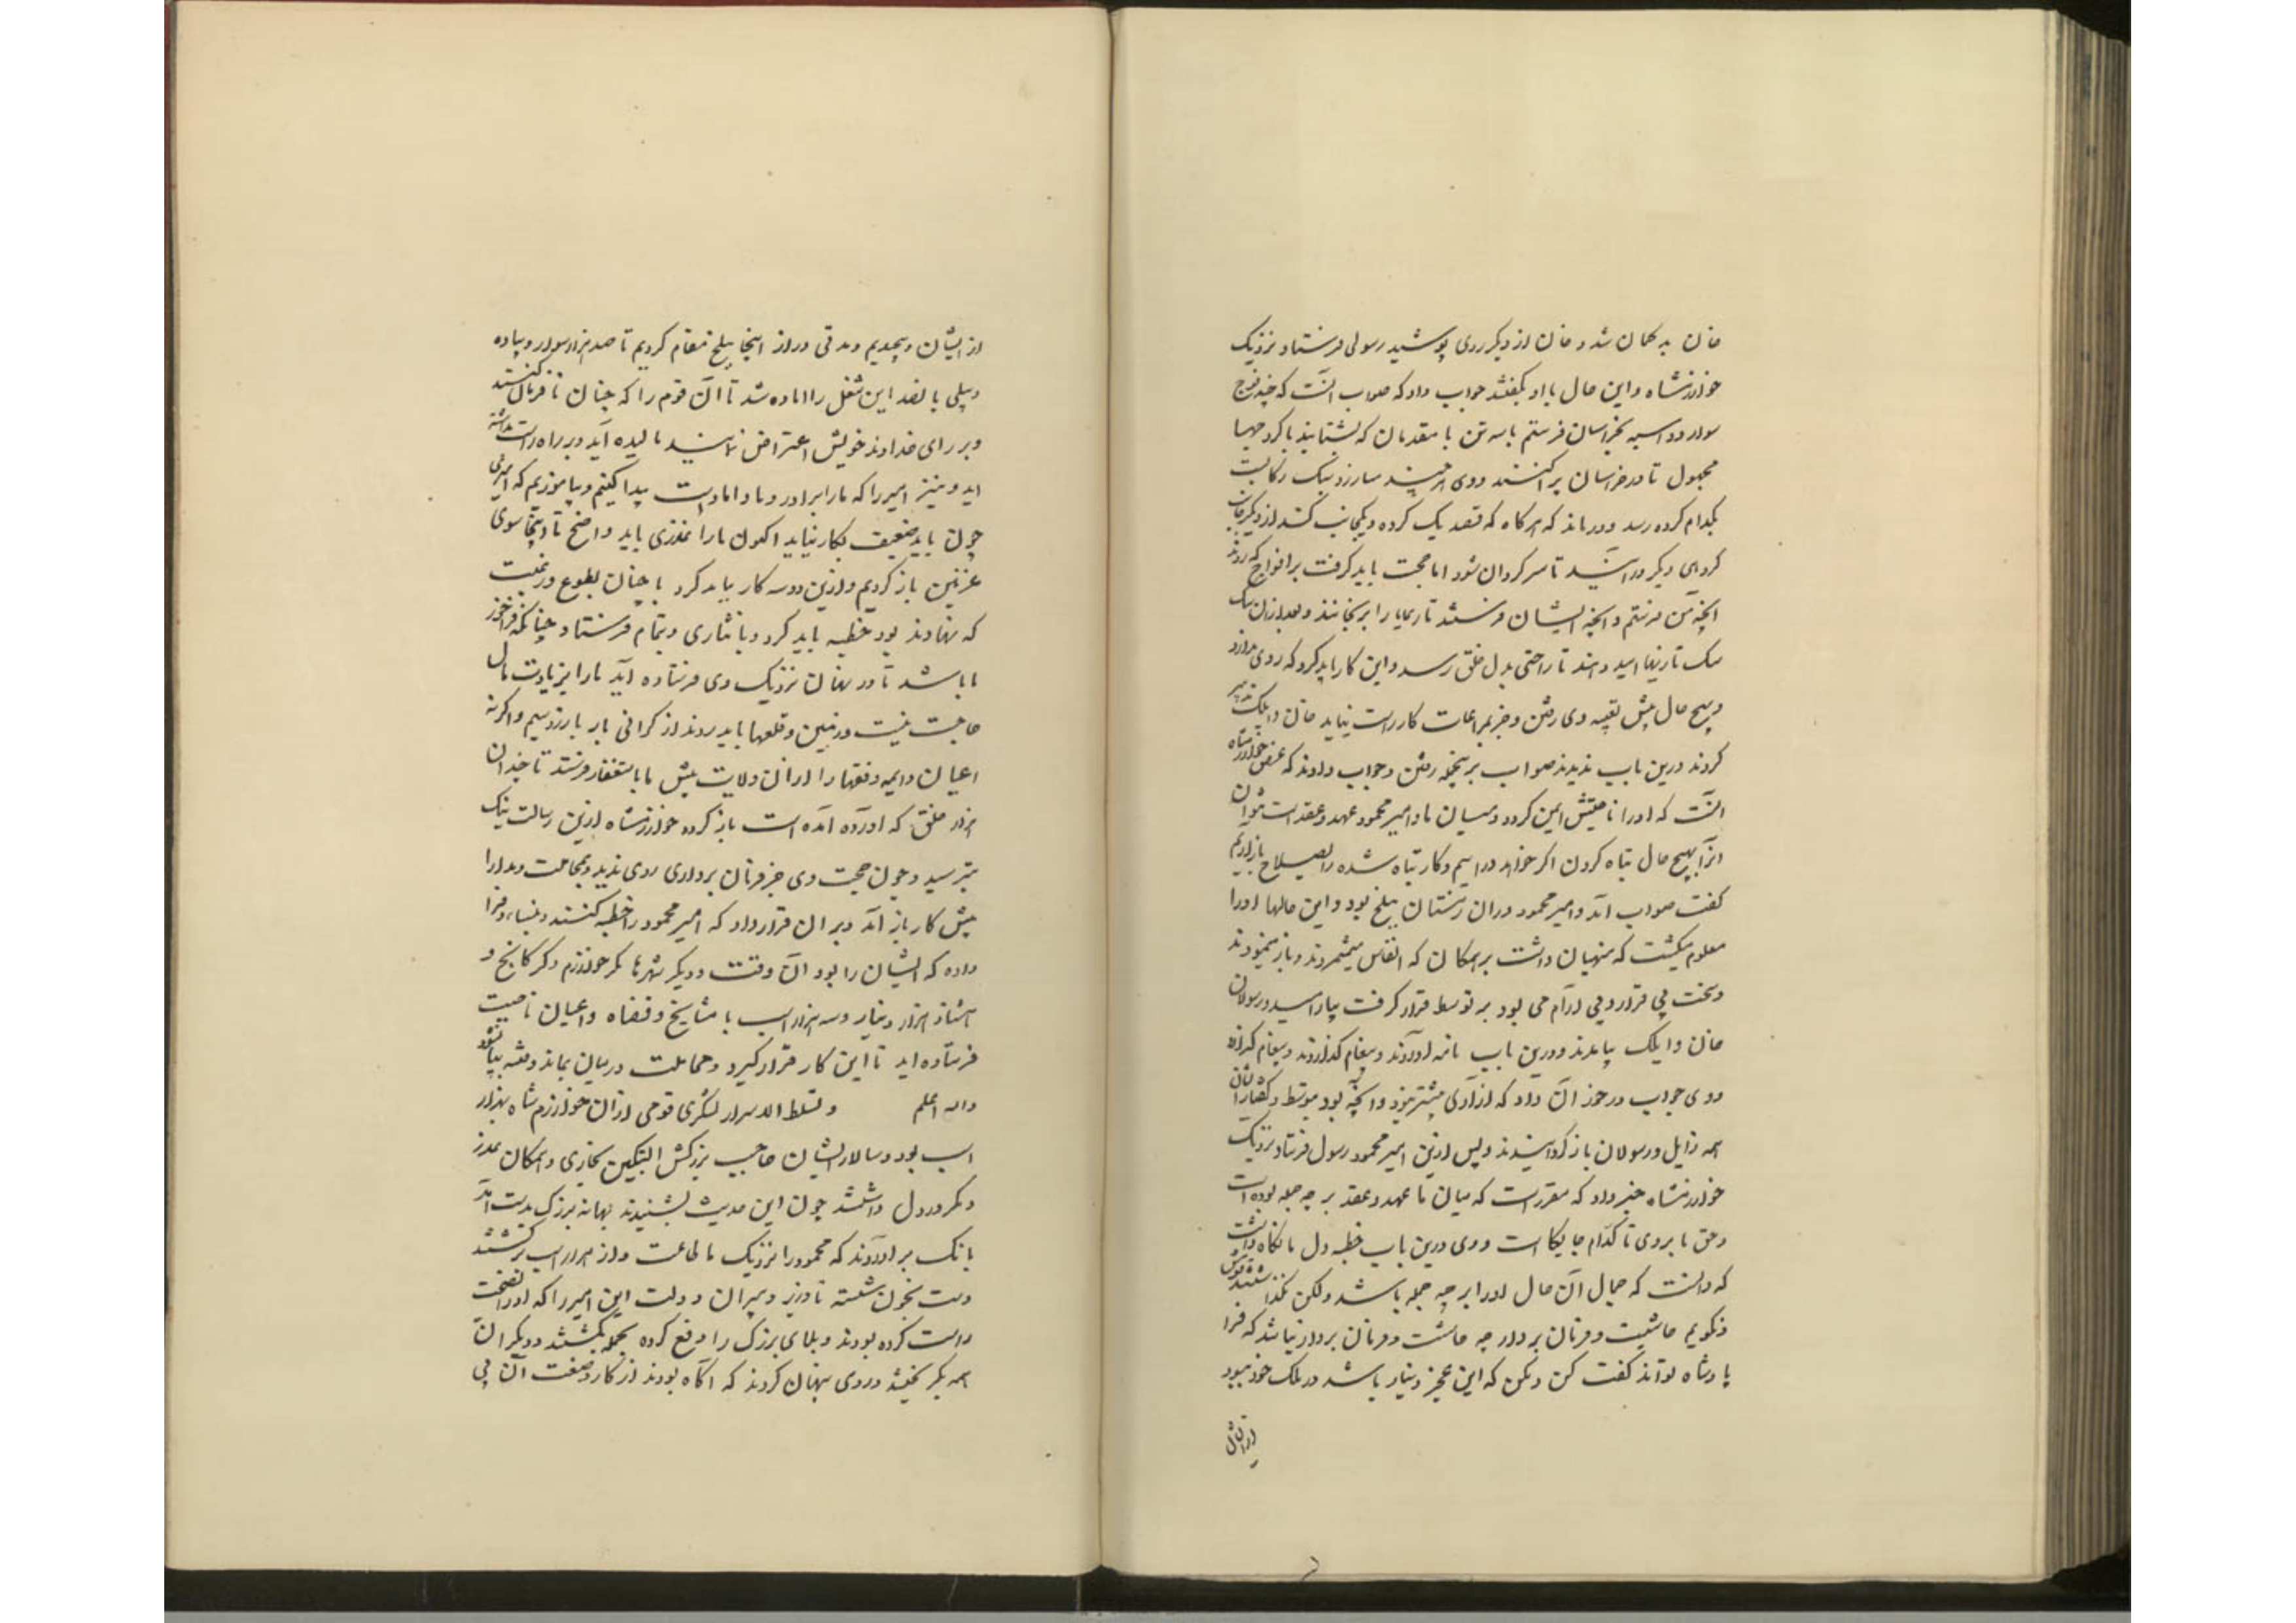 خان بد کمان شد و خان از دیکر روی پوشید رسولی فرستاد و نزدیک
خوارزمشاه و این حال با او بکفتند جواب داد که صواب آنست که چند فوج
سوار دو اسبه بخراسان فرستم با سه تن با مقدمان که بشتابند با کروهها
مجهول تا در خراسان پراکنند و وی هرچند مبارزو نیک رکابست
بکدام کروه رسد و درماند که هرکاه که قصد یک کروه و یکجانب کند از دیکر جانب
کروهی دیکر در آیند تا سرکردان شود اما حجت باید کرفت بر افواج که روند
انچه من فرستم و انچه ایشان فرستند تا رعایا را نرنجانند و بعد از آن سبک
سبک تازیها امید دهند تا راحتی بدل خلق رسد و این کار باید کرد که روی ندارد
و بهیچ حال پیش تعبیه وی رفتن و جز بمراعات کار راست نیاید خان و ایلک تدبیر
کردند درین باب ندیدند صواب برینجمله رفتن و جواب دادند که غرض خوارزمشاه
آنست که او را ناحیتش ایمن کردد و میان ما و امیر محمود عهد و عقد است نتوان
انرا بهیچ حال تباه کردن اکر خواهد در آییم و کار تباه شده را بصلاح باز آریم
کفت صواب آمد و امیر محمود در آن زمستان ببلخ بود و این حالها او را
معلوم میکشت که منهیان داشت بر همکان که انفاس میشمردند و باز مینمودند
و سخت بی قرار و بی آرام می بود بر توسط قرار کرفت بیارامید و رسولان
خان و ایلک بیامدند و درین باب نامه آوردند و پیغام کذاردند و پیغام کذارده
و وی جواب در خور آن داد که آزاری بیشتر نبود و انچه بود بتوسط و کفتار ایشان
همه زایل و رسولان باز کردانیدند و پس ازین امیر محمود رسول فرستاد نزدیک
خوارزمشاه خبر داد که مقررست که میان ما عهد و عقد بر چه جمله بوده است
و حق ما بر وی تا کدام جایکاست و وی درین باب خطبه دل ما نکاه داشت
که دانست که جمال آن حال او را بر چه جمله باشد ولکن نکذاشتند قومش
و نکویم حاشیت و فرمان بردار چه حاشیت و فرمان بردار نباشد که فرا
پادشاه تواند کفت کن و مکن که این عجز و نیاز باشد در ملک خود نبود
از ایشان
از ایشان و پیچیدیم و مدتی دراز اینجا ببلخ مقام کردیم تا صد هزار سوار و پیاده
و پیلی پانصد این شغل را اماده شد تا آن قوم را که چنان نافرمانی کنند
و بر رای خداوند خویش اعتراض نمایند مالیده آید و بر راه راست بداشته
اید و نیز امیر را که ما را برادر و داماد است بیدار کنیم و بیاموزیم که امیری
چون باید ضعیف بکار نیاید اکنون ما را عذری باید واضح تا از اینجا سوی
غزنین باز کردیم و ازین دو سه کار بباید کرد یا چنان بطوع و رغبت
که نهادند بود خطبه باید کرد و یا نثاری و بتمام فرستاد چنانکه فراخور
ما باشد تا در نهان نزدیک وی فرستاده آید ما را بزیادت مال
حاجت نیست و زمین و قلعها با بدروند از کرانی بار با زر و سیم و اکر نه
اعیان و ایمه و فقها را از ان ولایت پیش ما باستغفار فرستد تا چندان
هزار خلق که آورده آمده است باز کردد خوارزمشاه ازین رسالت نیک
بترسید و چون حجت وی جز فرمان برداری روی ندید و بمجاملت و مدارا
پیش کار باز آمد و بر ان قرار داد که امیر محمود را خطبه کنند و بنساء و فراوه
داده که ایشان را بود آن وقت و دیکر شهرها مکر خوارزم و کرکانج و
هشتاد هزار دینار و سه هزار اسب با مشایخ و قضاه و اعیان ناحیت
فرستاده اید تا این کار قرار کیرد و مجاملت در میان بماند و فتنه بپا نشود
والله اعلم و تسلط الاشرار لشکری قوی از ان خوارزم شاه بهزار
اسب بود و سالار ایشان حاجب بزرکش البتکین بخاری و همکان غدر
و مکر در دل داشتند چون این حدیث بشنیدند بهانه بزرک بدست آمد
بانک بر آوردند که محمود را نزدیک ما طاعت و از هزار اسب برکشتند
دست بخون شسته تا وزیر و پیران و دولت این امیر را که او را نصیحت
راست کرده بودند و بلای بزرک را دفع کرده بجمله بکشتند و دیکر ان
همه بکریختند و روی پنهان کردند که اکاه بودند از کار و صفت آن بی